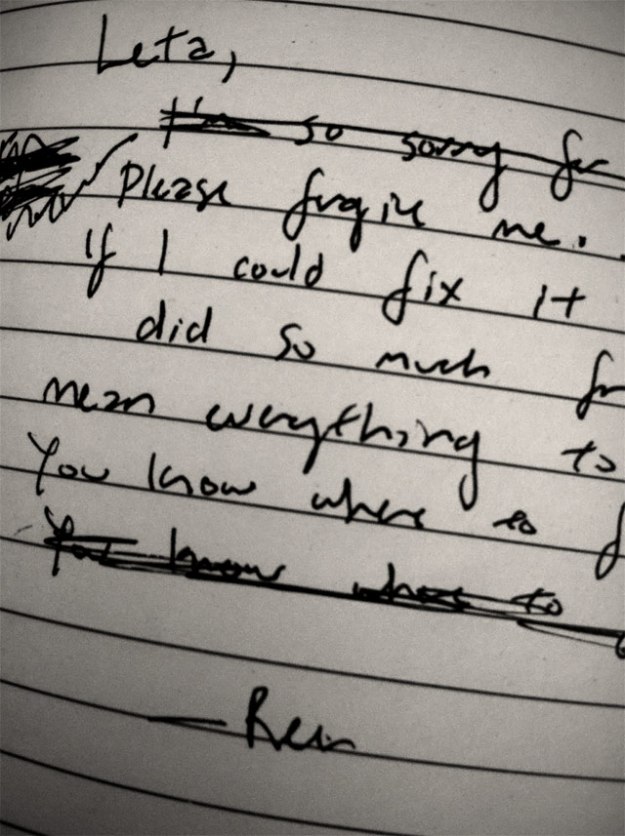 Leta,
I'm so sorry for
Please forgive me.
If I could fix it
did so much for
mean everything to
You know where to f
You know where to
—Ren